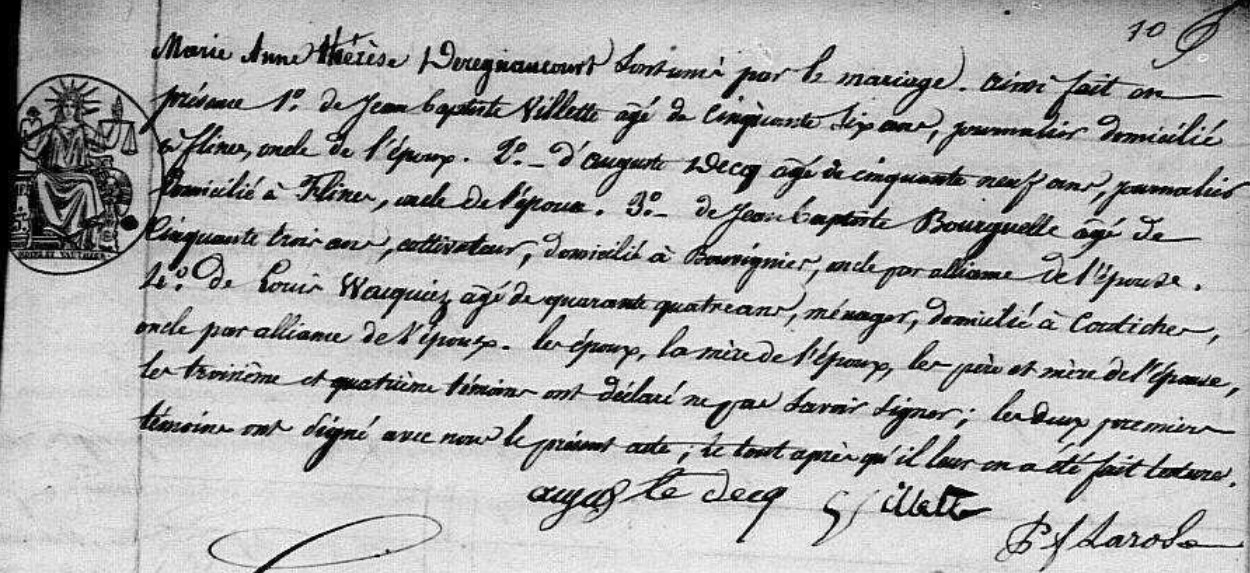 10
Marie Anne Thérèse Deregnaucourt sont unis par le mariage. ainsi fait en
présence 1º. de Jean baptiste Villette agé de Cinquante Six ans, journalier domicilié
à flines, oncle de l'époux. 2º_ d'auguste Decq agé de cinquante neuf ans, journalier
domicilié à Flines, oncle de l'époux. 3º_ de Jean baptiste Bourguelle agé de
Cinquante trois ans, cultivateur, domicilié à Bouvignies, oncle par alliance de l'épouse.
4º. de Louis Wacquiez agé de quarante quatre ans, ménager, domicilié à Coutiches,
oncle par alliance de l'époux. les époux, la mère de l'époux, les père et mère de l'épouse,
les troisième et quatrième témoins ont déclaré ne pas savoir signer; les deux premiers
témoins ont signé avec nous le présent acte; le tout après qu'il leur en a été fait lecture.
auguste decq Villette